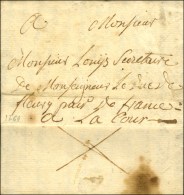 A Monsieur
Monsieur Louïs Secretaire
De Monseigneur Le Duc de
fleury pair de france
a La Cour